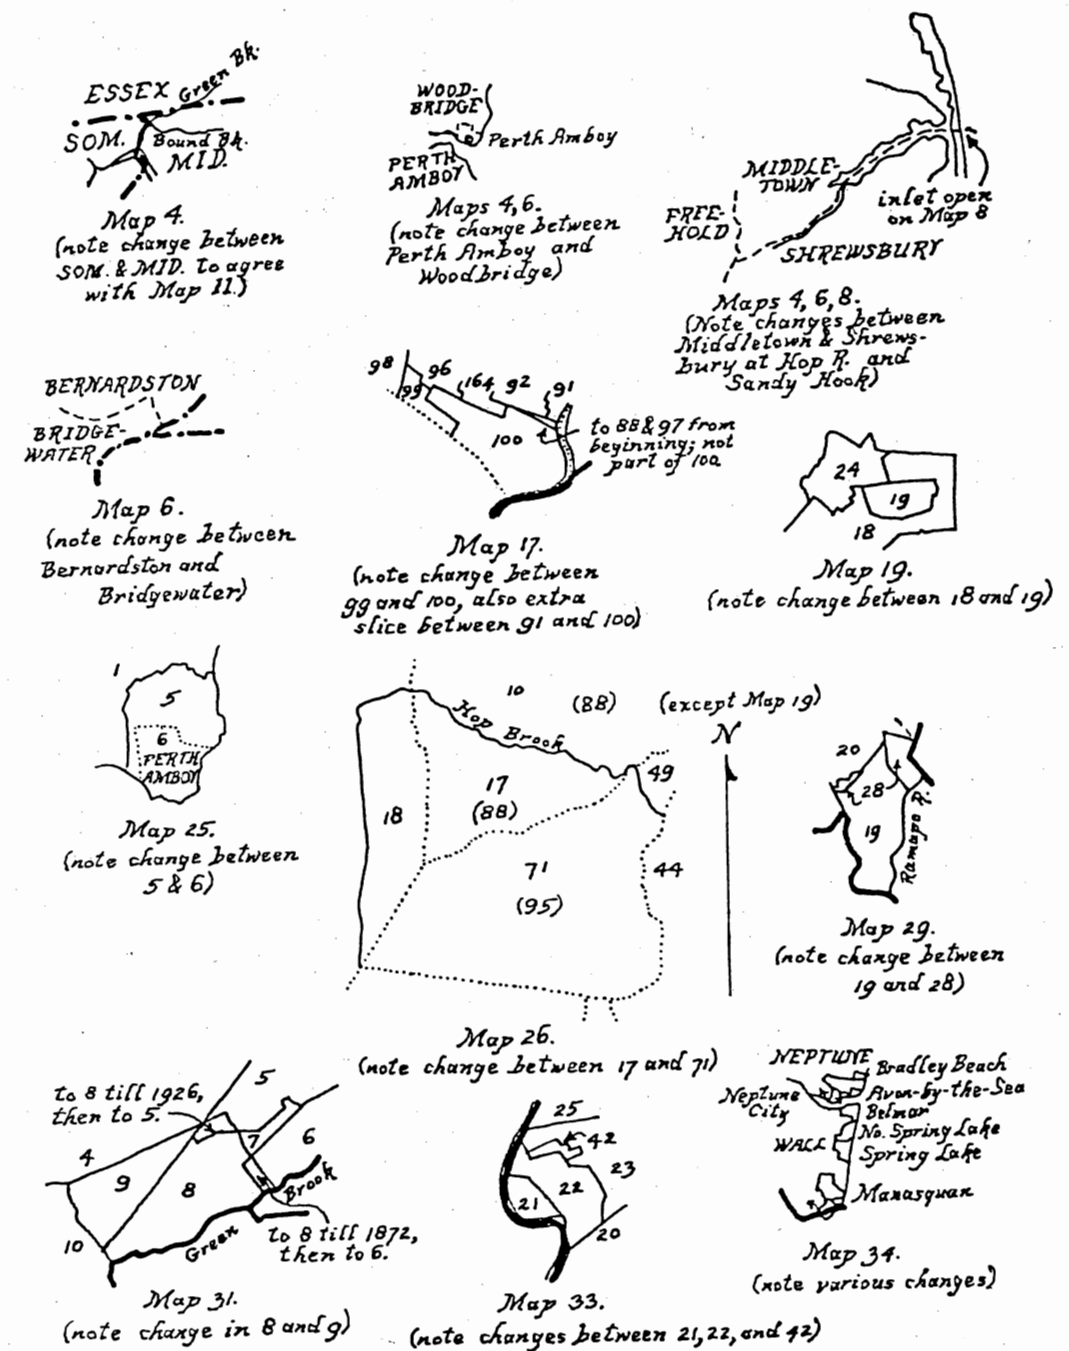 ESSEX
Green Bk.
SOM.
Bound Bk.
MID.
Map 4.
(note change between
SOM. & MID. to agree
with Map 11.)
WOOD-
BRIDGE
Perth Amboy
PERTH
AMBOY
Maps 4,6.
(note change between
Perth Amboy and
Woodbridge)
MIDDLE-
TOWN
FREE-
HOLD
SHREWSBURY
inlet open
on Map 8
Maps 4,6,8.
(Note changes between
Middletown & Shrews-
bury at Hop R. and
Sandy Hook)
BERNARDSTON
BRIDGE-
WATER
Map 6.
(note change between
Bernardston and
Bridgewater)
98
99
96
164
92
91
100
to 88 & 97 from
beginning; not
part of 100
Map 17.
(note change between
99 and 100, also extra
slice between 91 and 100)
24
19
18
Map 19.
(note change between 18 and 19)
1
5
6
PERTH
AMBOY
Map 25.
(note change between
5 & 6)
10
(88)
(except Map 19)
Hop Brook
N
49
17
(88)
18
71
(95)
44
Map 26.
(note change between 17 and 71)
20
28
19
Ramapo R.
Map 29.
(note change between
19 and 28)
to 8 till 1926,
then to 5.
5
4
7
6
9
8
10
Green Brook
to 8 till 1872,
then to 6.
Map 31.
(note change in 8 and 9)
25
42
23
22
21
20
Map 33.
(note changes between 21, 22, and 42)
NEPTUNE
Bradley Beach
Neptune
City
Avon-by-the-Sea
Belmar
No. Spring Lake
WALL
Spring Lake
Manasquan
Map 34.
(note various changes)